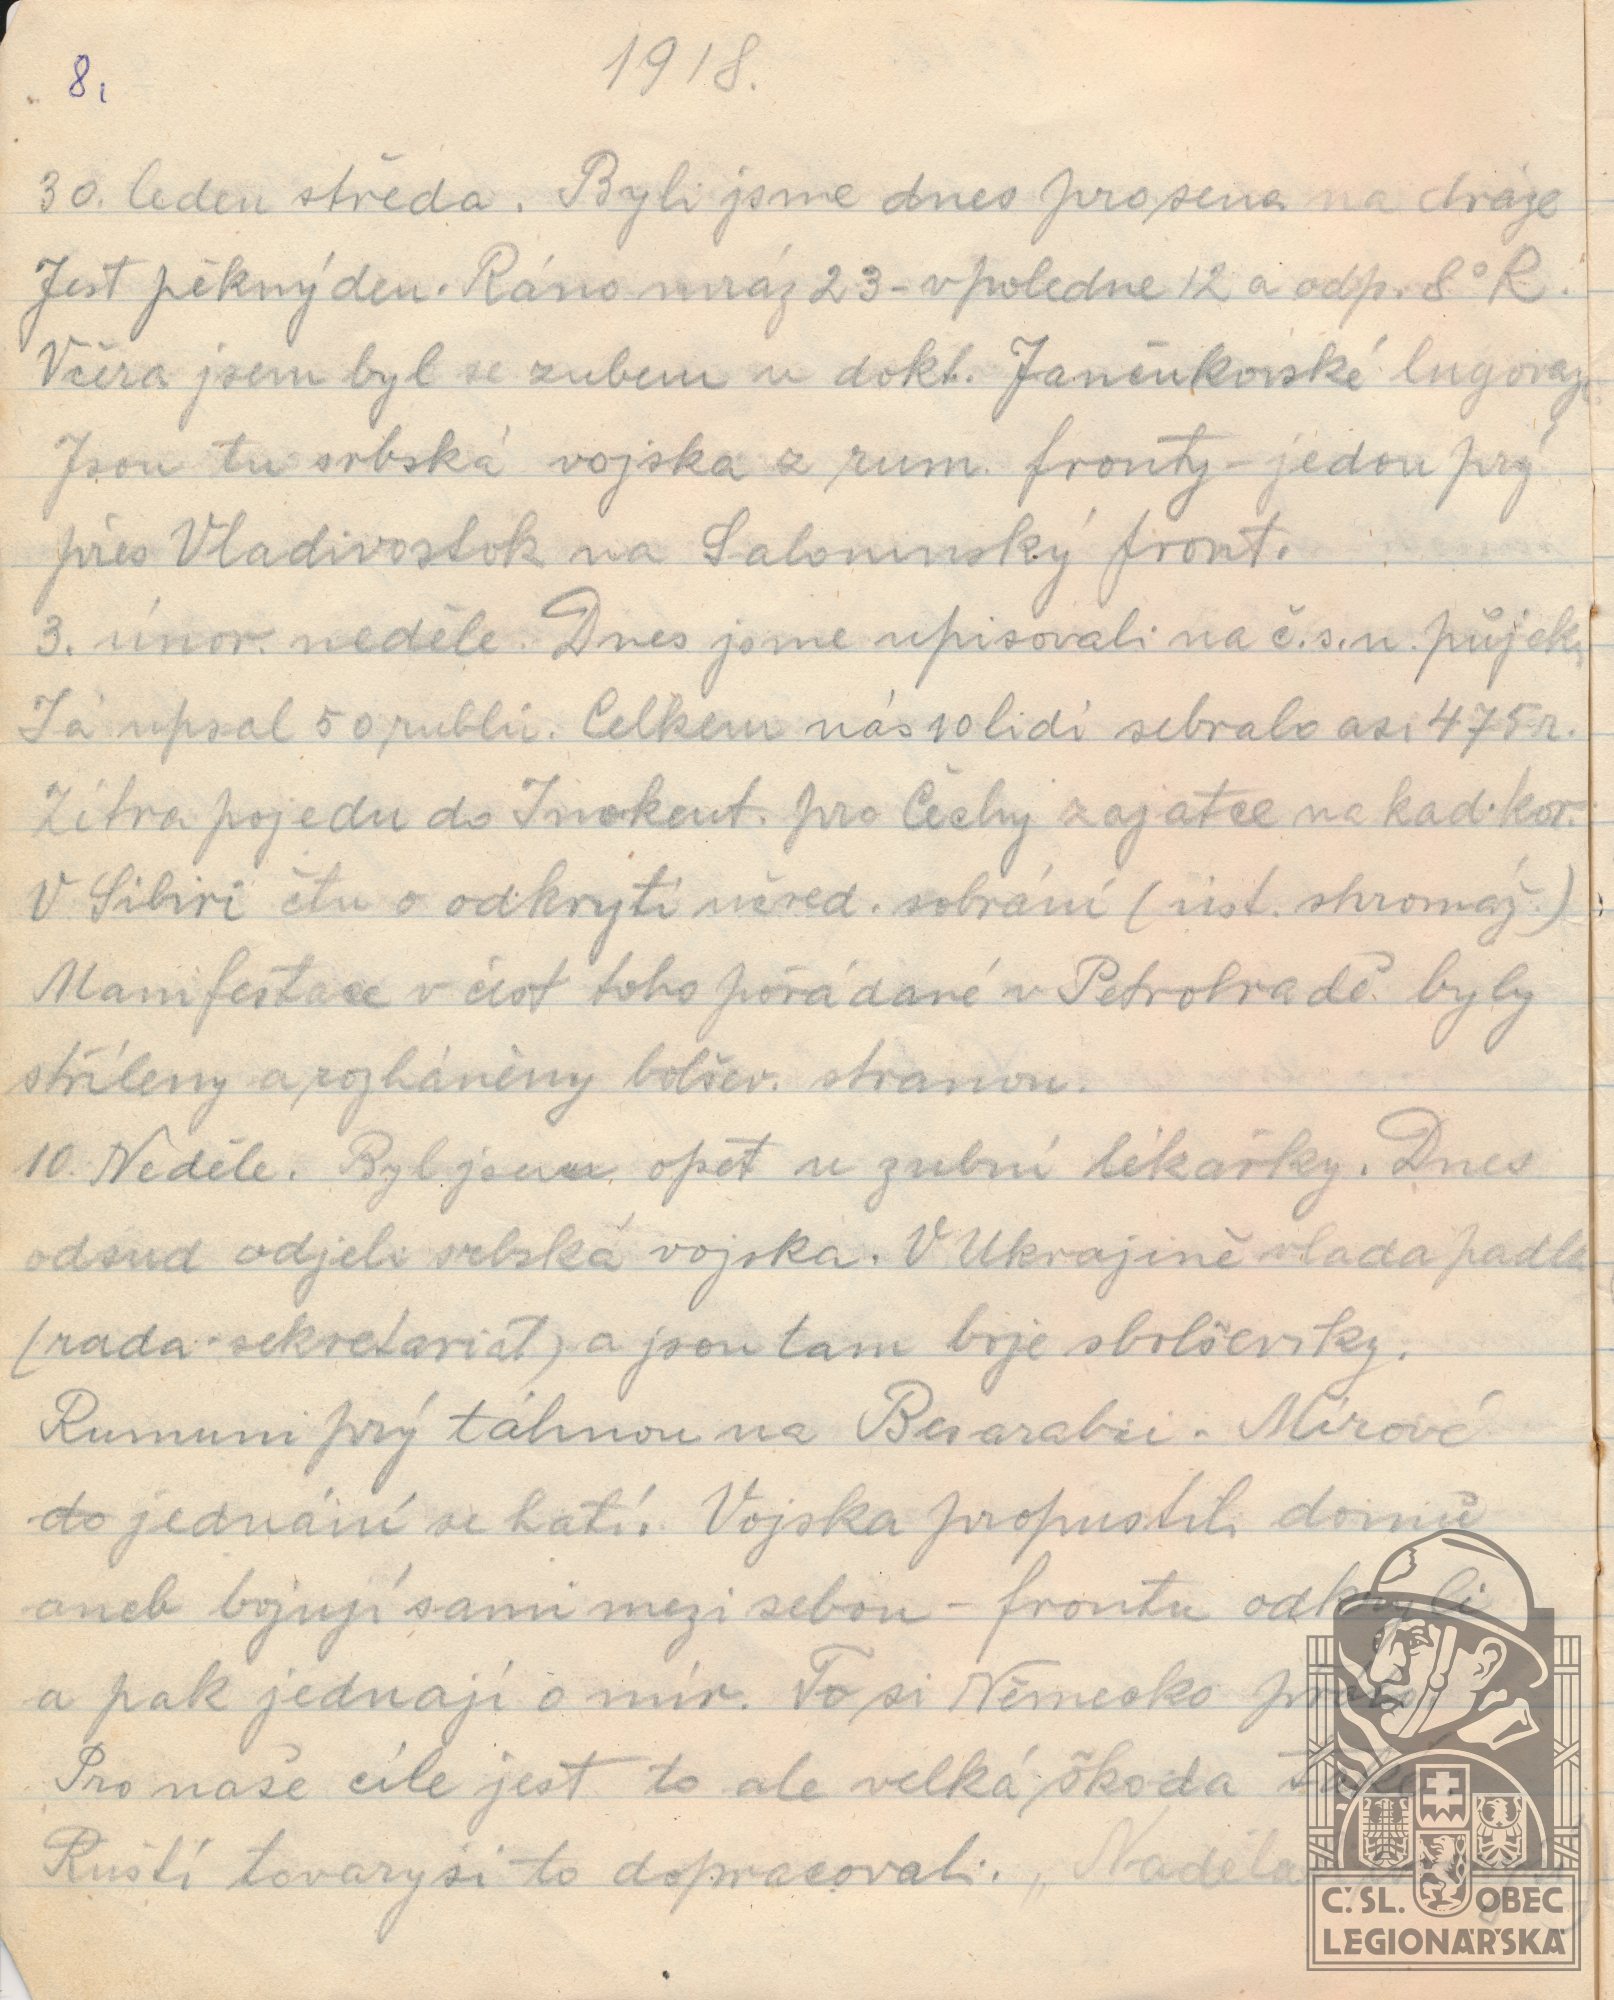 8.
1918.
30. leden středa. Byli jsme dnes pro sena na dráze
Jest pěkný den. Ráno mráz 23 - v poledne 12 a odp. 8°R.
Včera jsem byl se zubem u dokt. Jančukovské
Jsou tu srbská vojska z rum. fronty - jedou prý
přes Vladivostok na Saloninský front.
3. únor. neděle. Dnes jsme upisovali na č.s.n. půjčk.
Já upsal 50 rublů. Celkem nás 10 lidí sebralo asi 475 r.
Zítra pojedu do Inokent. pro Čechy zajatce na kad. kor.
V Sibiri čtu o odkrytí učred. sobrání (úst. shromáž.)
Manifestace v čest toho pořádané v Petrohradě byly
stříleny a rozháněny bolšev. stranou.
10. Neděle. Byl jsem opět u zubní lékařky. Dnes
odsud odjeli srbská vojska. V Ukrajině vlada padla
(rada - sekretariát) a jsou tam boje s bolševiky.
Rumuni prý táhnou na Besarabii. Mírové
do jednání se hatí. Vojska propustili domů
aneb bojují sami mezi sebou - frontu odkryli
a pak jednají o mír. To si Německo
Pro naše cíle jest to ale velká škoda také
Ruští tovaryši to dopracovali. „
Č.SL. OBEC
LEGIONÁŘSKÁ